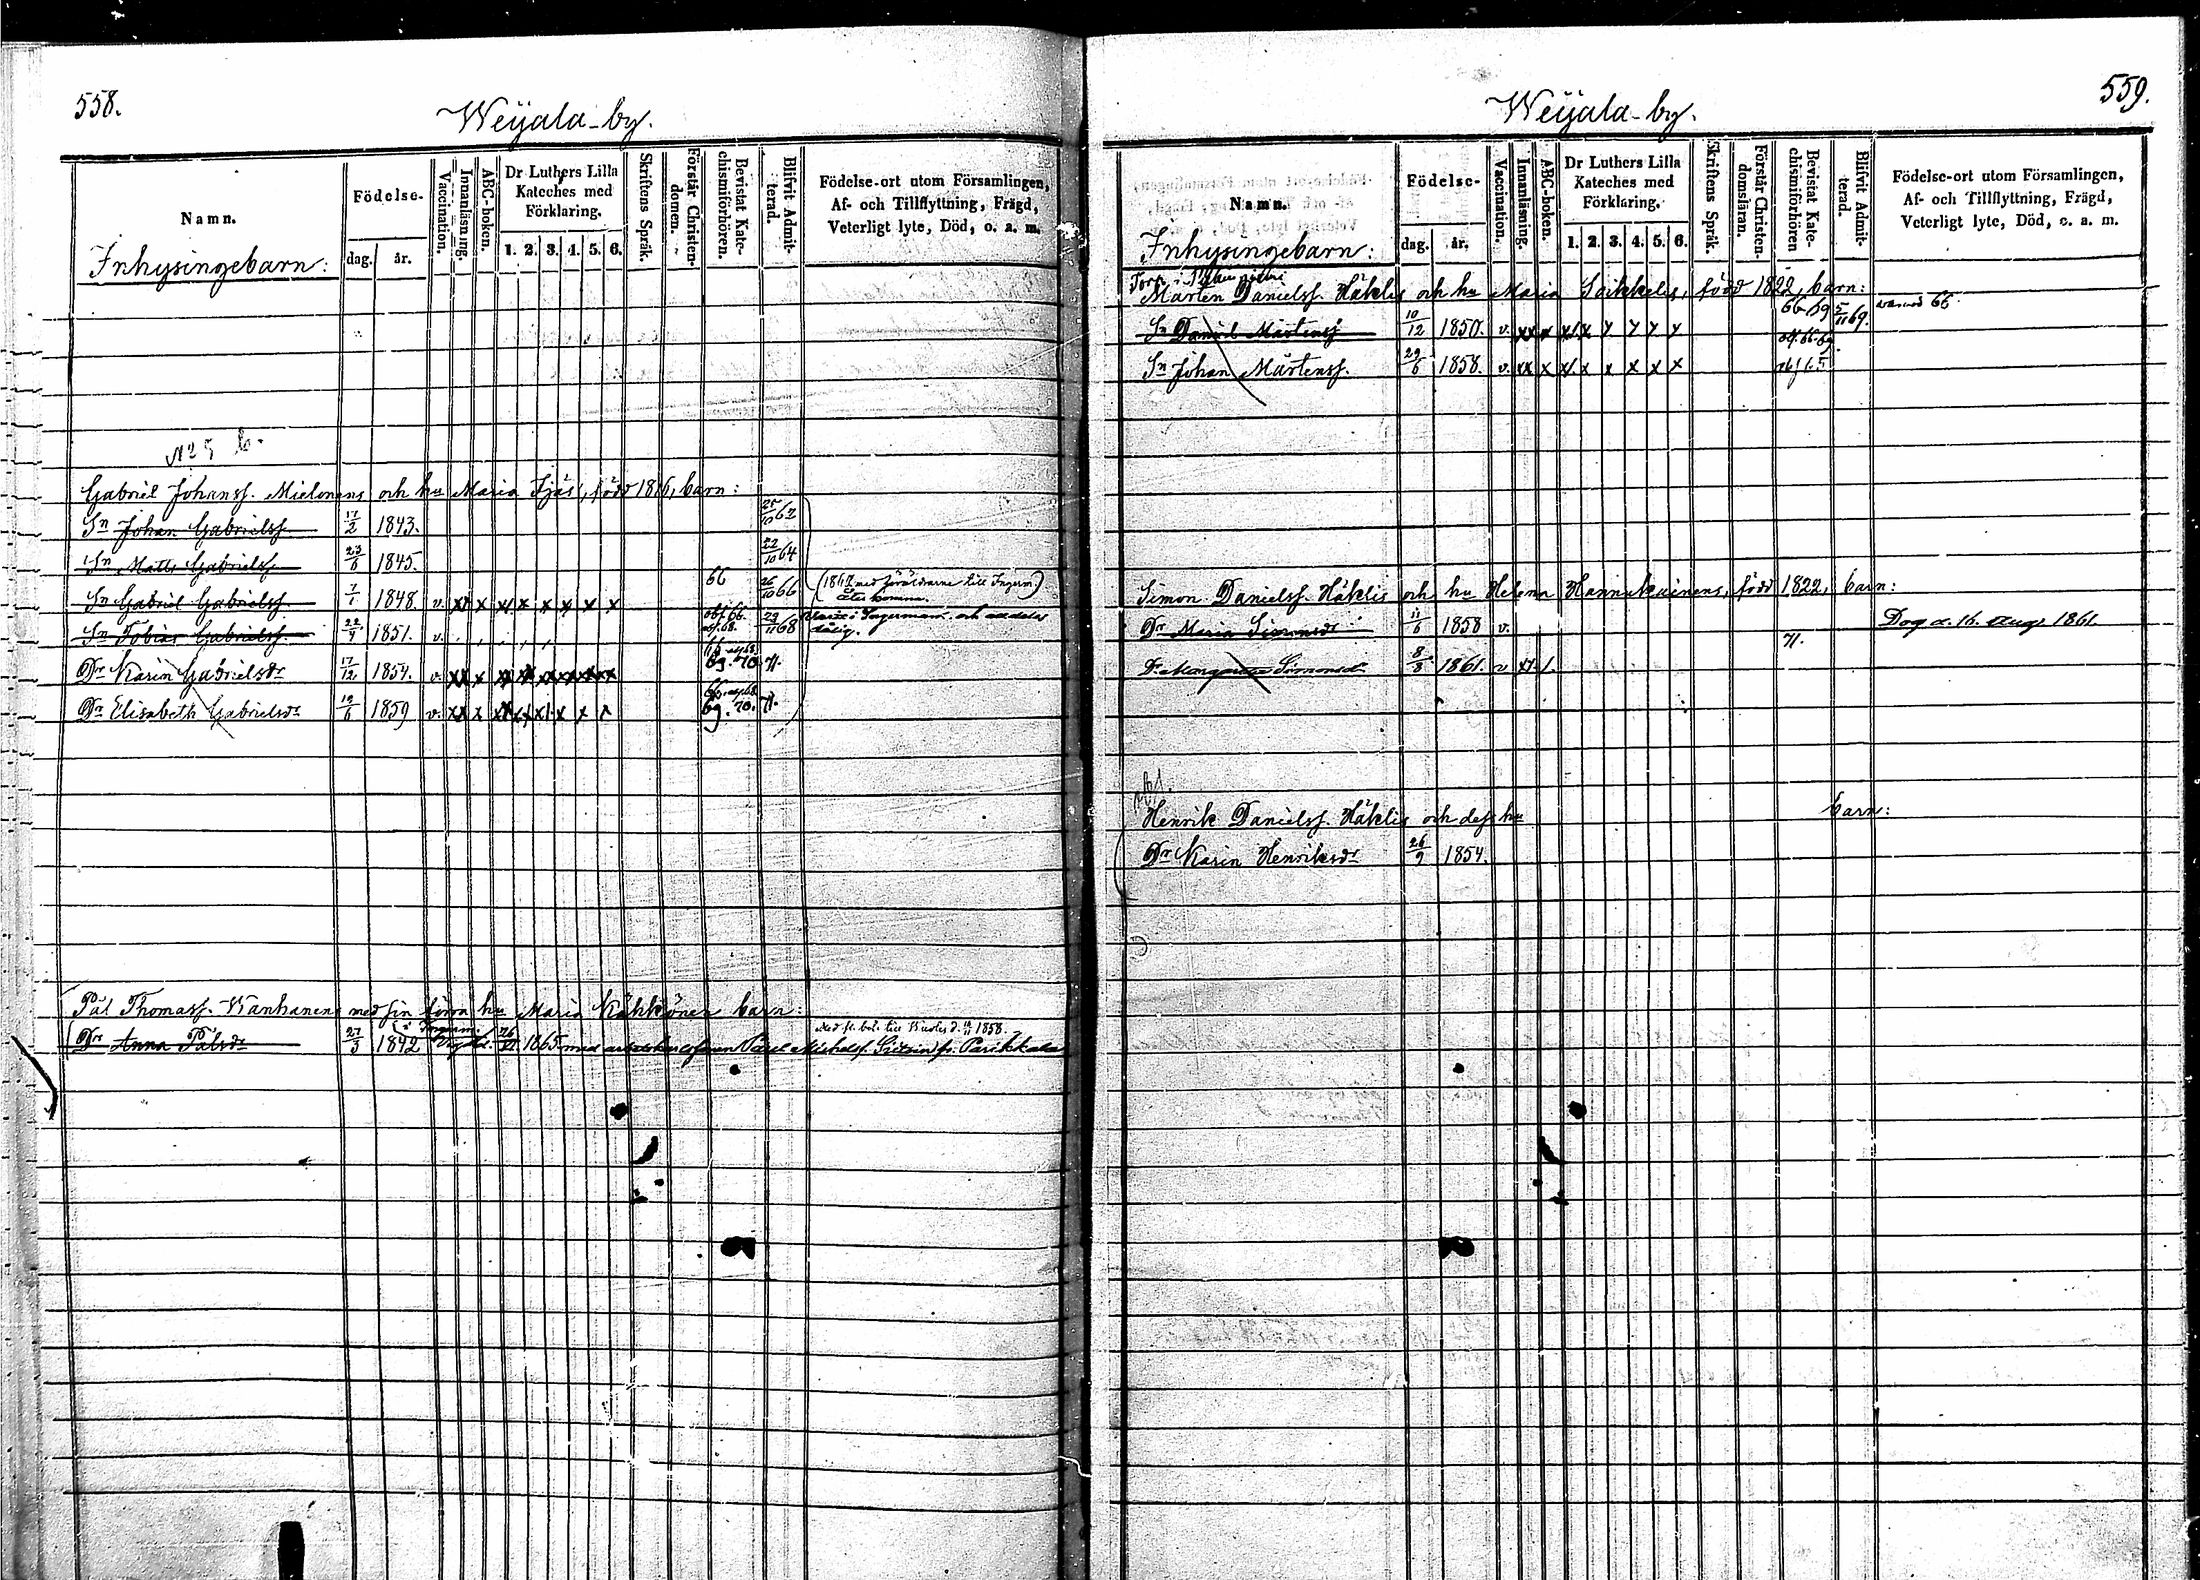 558.
Weijala-by.
Namn.
Födelse.
dag. år.
Vaccination.
Innanläsning.
ABC-boken.
Dr Luthers Lilla Kateches med Förklaring.
1. 2. 3. 4. 5. 6.
Skriftens Språk.
Förstår Christendomen.
Bevistat Katechismiförhören.
Blifvit Admitterad.
Födelse-ort utom Församlingen,
Af- och Tillflyttning, Frägd,
Veterligt lyte, Död, o. a. m.
Inhysingebarn:
N:o 5 b.
Gabriel Johanss. Mielonens och hu Maria född 1816, barn:
Sn Johan Gabrielss. 17/2 1843. 62
Sn Matts Gabrielss. 23/6 1845. 22/10 64
Sn Gabriel Gabrielss. 7/1 1848. v. xx x x x x x x x 66 26/10 66 med föräldrarne till Ingerm.
Sn Tobias Gabrielss. 22/4 1851. v. 66. 68. 29/11 68 i Ingermanl. och
dålig.
Dr Karin Gabrielsdr 17/12 1854. v. xx x 69. 70. 71.
Dr Elisabeth Gabrielsdr 19/6 1859 v. xx x 69. 70. 71.
Pål Thomass. Wanhanens med sin förra hu Maria Kähkönen barn:
Dr Anna Pålsdr 27/3 1842 1865 med Påul Michelss. fr. Parikkala
1858.
559.
Weijala-by.
Namn.
Födelse-
dag. år.
Vaccination.
Innanläsning.
ABC-boken.
Dr Luthers Lilla Kateches med Förklaring.
1. 2. 3. 4. 5. 6.
Skriftens Språk.
Förstår Christendomsläran.
Bevistat Katechismiförhören
Blifvit Admitterad.
Födelse-ort utom Församlingen,
Af- och Tillflyttning, Frägd,
Veterligt lyte, Död, o. a. m.
Inhysingebarn:
Torp.
Mårten Danielss. Häklis och hu Maria Soikkelis, född 1822, barn:
Sn Daniel Mårtenss. 10/12 1850. v. xx x 66-69 5/11 69. 66
Sn Johan Mårtenss. 29/6 1858. v. xx x x x x x x 66-69.
Simon Danielss. Häklis och hu Helena Hannukainens, född 1822, barn:
Dr Maria Simonsdr 11/6 1858 v. Dog d. 16. Aug. 1861
Dr Margareta Simonsdr 8/8 1861. v 71.
Henrik Danielss. Häklis och dess hu barn:
Dr Karin Henriksdr 26/9 1854.